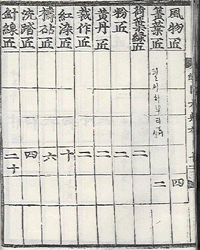 風物匠 四
簧葉匠 二
荷葉綠匠 二
粉匠 二
黃丹匠 二
裁作匠 二
紅漆匠 十
擣砧匠 六
洗踏匠 四
針線匠 二十